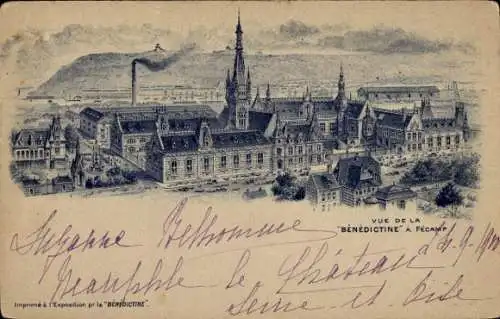 VUE DE LA
"BÉNÉDICTINE" A FÉCAMP
Suzanne Belhomme 4-9-1900
Neauphle le Château
Seine-et Oise
Imprimé à l'Exposition pr la "BÉNÉDICTINE".